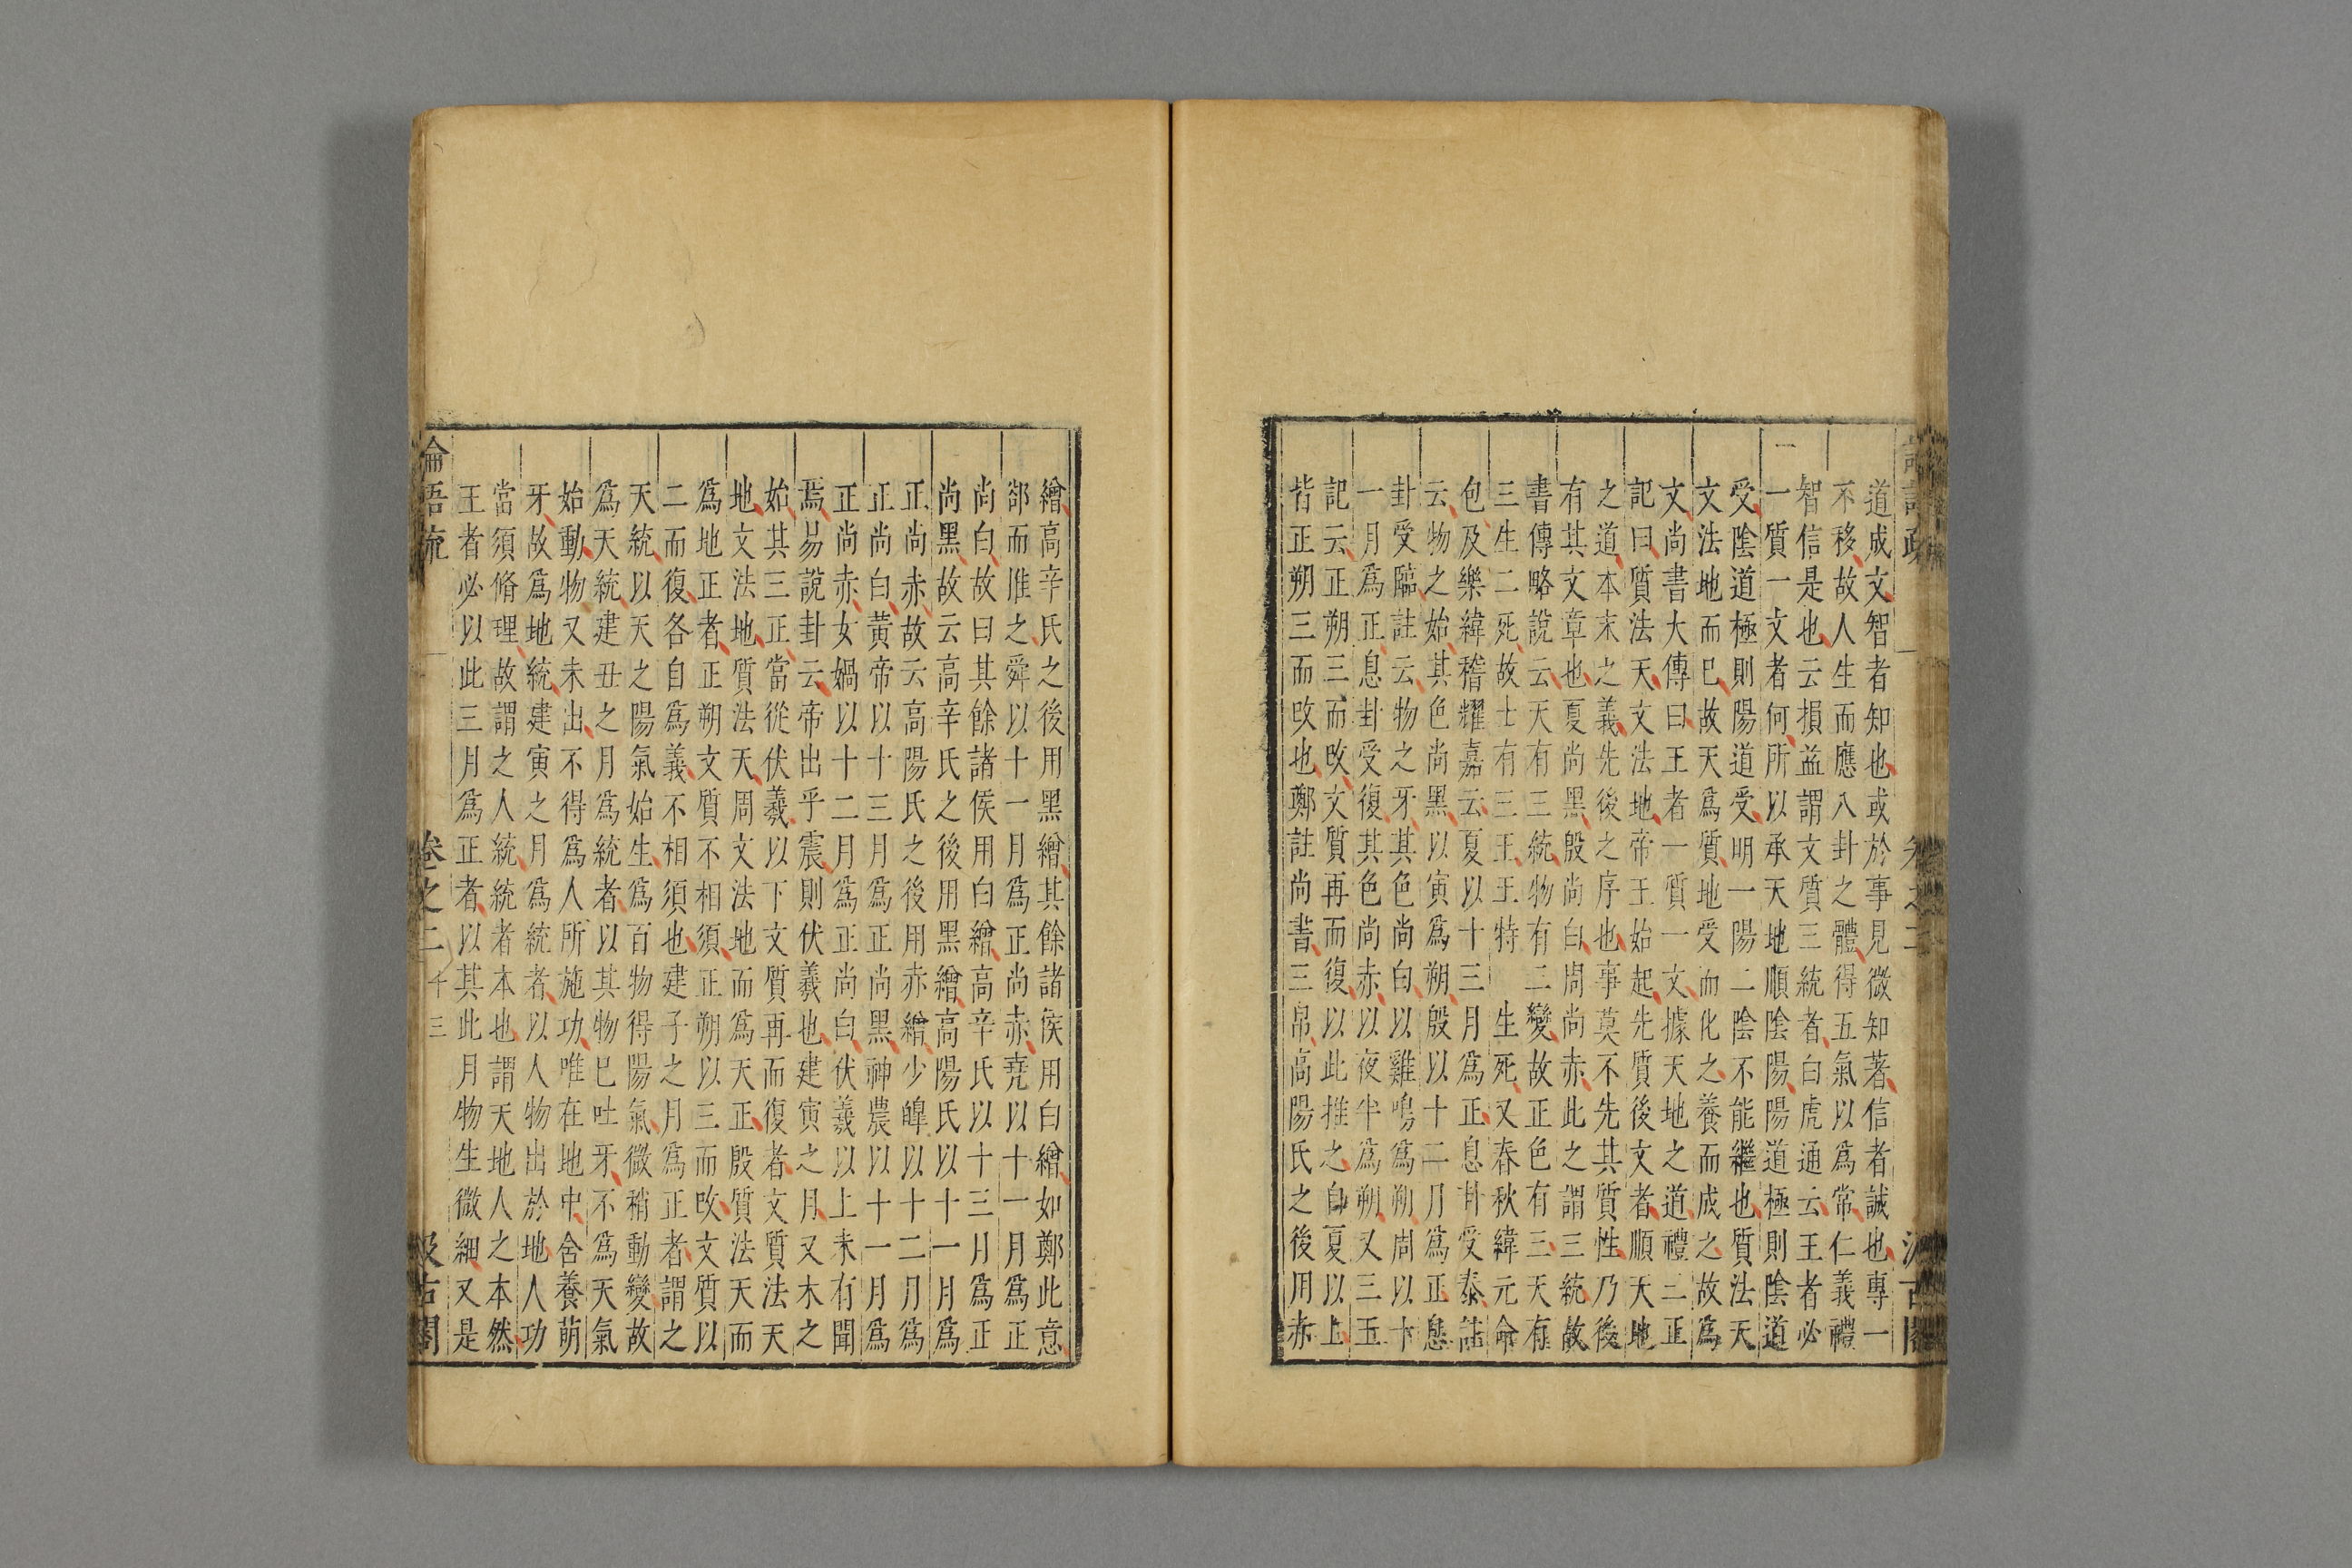 道成文智者知也或於事見微知著信者誠也專一
不移故人生而應八卦之體得五氣以爲常仁義禮
智信是也云損益謂文質三統者白虎通云王者必
一質一文者何所以承天地順陰陽陽道極則陰道
受陰道極則陽道受明一陽二陰不能繼也質法天
文法地而巳故天爲質地受而化之養而成之故爲
文尚書大傳曰王者一質一文據天地之道禮三正
記曰質法天文法地帝王始起先質後文者順天地
之道本末之義先後之序也事莫不先其質性乃後
有其文章也夏尚黑殷尚白周尚赤此之謂三統故
書傳略說云天有三統物有二變故正色有三天有
三生二死故士有三王王特 生死又春秋緯元命
包及樂緯稽耀嘉云夏以十三月爲正息卦受泰註
云物之始其色尚黑以寅爲朔殷以十二月爲正息
卦受臨註云物之牙其色尚白以雞鳴爲朔周以十
一月爲正息卦受復其色尚赤以夜半爲朔又三正
記云正朔三而攺文質再而復以此推之自夏以上
皆正朔三而攺也鄭註尚書三帛高陽氏之後用赤
繒高辛氏之後用黑繒其餘諸侯用白繒如鄭此意
郤而推之舜以十一月爲正尚赤堯以十一月爲正
尚白故曰其餘諸侯用白繒高辛氏以十三月爲正
尚黑故云高辛氏之後用黑繒高陽氏以十一月爲
正尚赤故云高陽氏之後用赤繒少皥以十二月爲
正尚白黃帝以十三月爲正尚黑神農以十一月爲
正尚赤女媧以十二月爲正尚白伏羲以上未有聞
焉易說卦云帝出乎震則伏羲也建寅之月又木之
始其三正當從伏羲以下文質再而復者文質法天
地文法地質法天周文法地而爲天正殷質法天而
爲地正者正朔文質不相須正朔以三而攺文質以
二而復各自爲義不相須也建子之月爲正者謂之
天統以天之陽氣始生爲百物得陽氣微稍動變故
爲天統建丑之月爲統者以其物巳吐牙不爲天氣
始動物又未出不得爲人所施功唯在地中含養萌
牙故爲地統建寅之月爲統者以人物出於地人功
當須脩理故謂之人統統者本也謂天地人之本然
王者必以此三月爲正者以其此月物生微細又是
論語疏 卷之二 十三 汲古閣